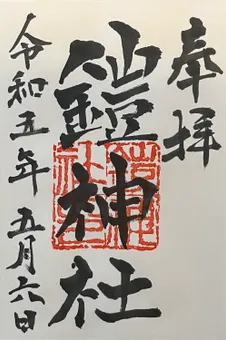 奉拝
鎧神社
令和五年五月六日